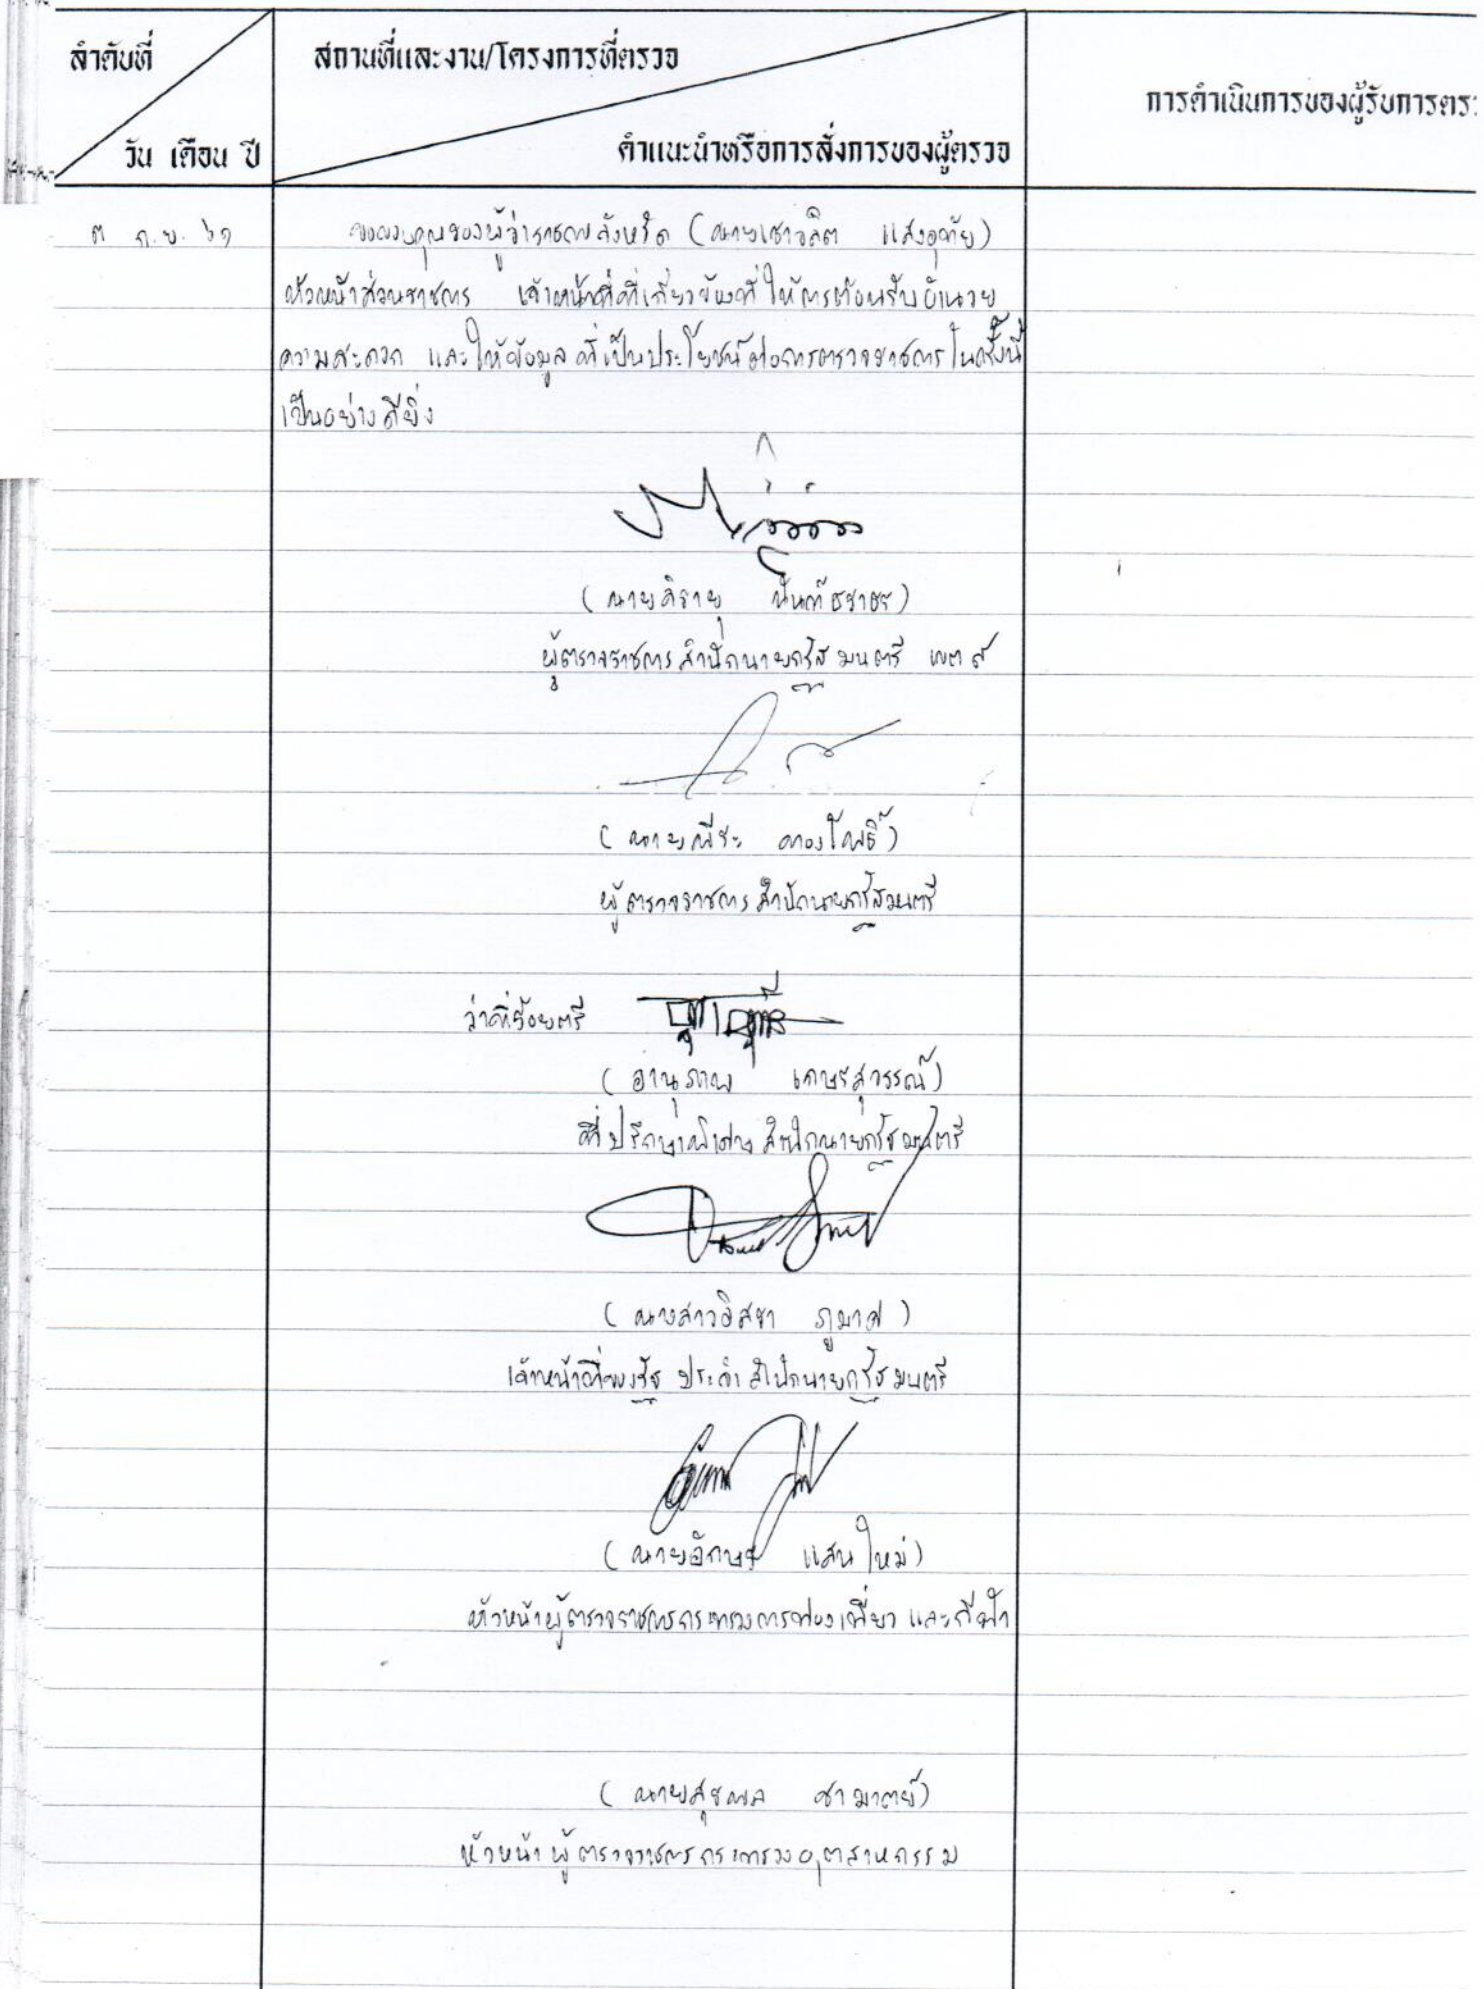 ลำดับที่
สถานที่และงาน/โครงการที่ตรวจ
การดำเนินการของผู้รับการตร
วัน เดือน ปี
คำแนะนำหรือการสั่งการของผู้ตรวจ
๓ ก.ย. ๖๑
ขอขอบคุณรองผู้ว่าราชการจังหวัด (นายเชาวลิต แสงอุทัย)
หัวหน้าส่วนราชการ เจ้าหน้าที่ที่เกี่ยวข้องที่ให้การต้อนรับ อำนวย
ความสะดวก และให้ข้อมูลที่เป็นประโยชน์ต่อการตรวจราชการในครั้งนี้
เป็นอย่างดียิ่ง
(นายจิรายุ นันท์ธราธร)
ผู้ตรวจราชการสำนักนายกรัฐมนตรี เขต ๙
(นายพีระ ทองโพธิ์)
ผู้ตรวจราชการสำนักนายกรัฐมนตรี
ว่าที่ร้อยตรี
(อานุภาพ เกษรสุวรรณ์)
ที่ปรึกษา สำนักนายกรัฐมนตรี
(นางสาวอิสชา ภูมาศ)
เจ้าหน้าที่ของรัฐ ประจำสำนักนายกรัฐมนตรี
(นายอักษร แสนใหม่)
หัวหน้าผู้ตรวจราชการกระทรวงการท่องเที่ยว และกีฬา
( )
หัวหน้าผู้ตรวจราชการกระทรวงอุตสาหกรรม